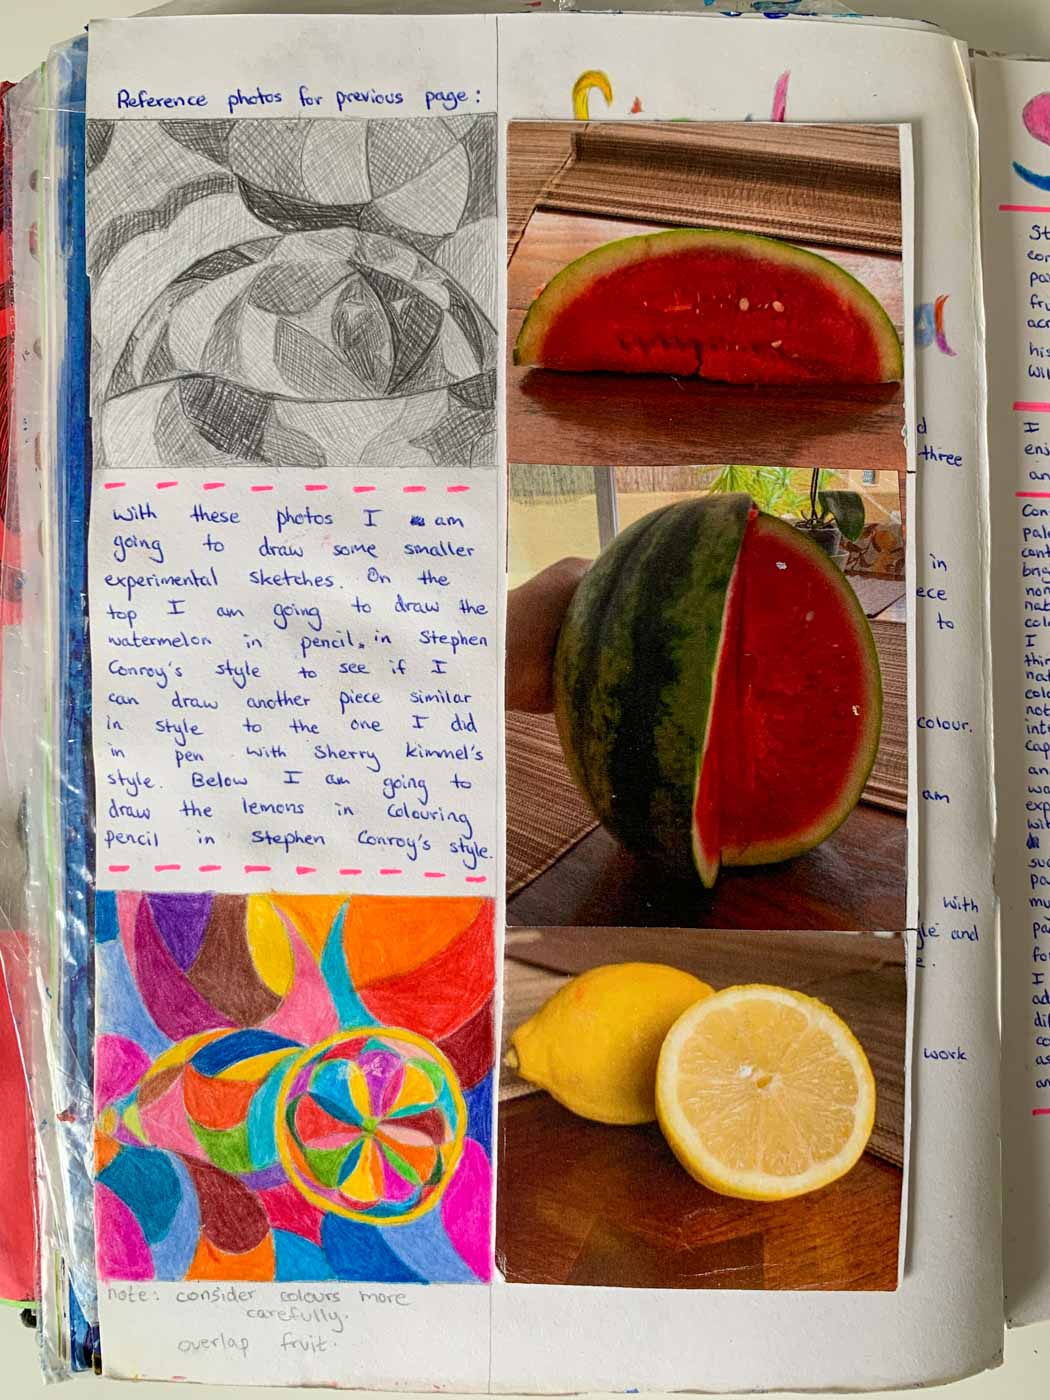 Reference photos for previous page:
With these photos I am
going to draw some smaller
experimental sketches. On the
top I am going to draw the
watermelon in pencil, in Stephen
Conroy's style to see if I
can draw another piece similar
in style to the one I did
in pen with Sherry kimmel's
style. Below I am going to
draw the lemons in colouring
pencil in Stephen Conroy's style.
note: consider colours more
carefully.
overlap fruit.
d
three
in
ece
to
colour.
am
with
yle and
e.
work
St
con
pai
fru
acr
his
wil
I
enj
an
Con
pale
cont
brig
non
nat
colo
I
thin
nat
colo
not
inte
cap
an
wa
exp
wit
suc
pa
mu
pai
for
I
ad
dif
co
as
an